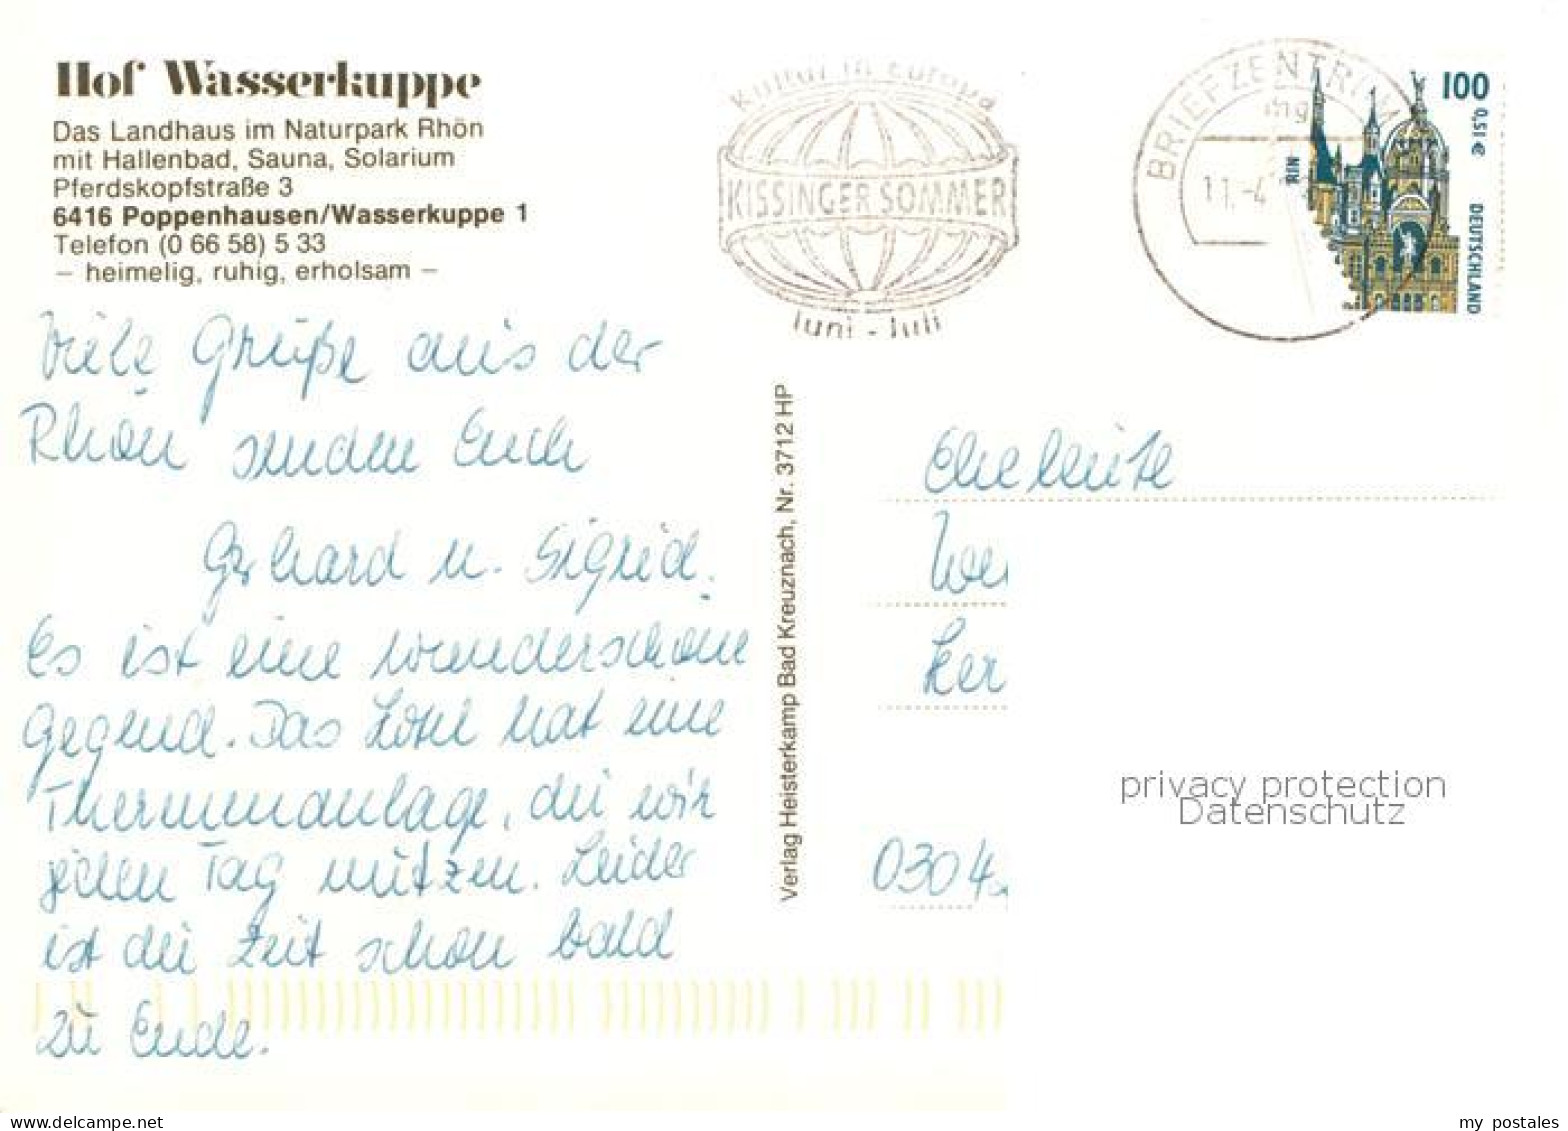 Hof Wasserkuppe
Das Landhaus im Naturpark Rhön
mit Hallenbad, Sauna, Solarium
Pferdskopfstraße 3
6416 Poppenhausen/Wasserkuppe 1
Telefon (0 66 58) 5 33
– heimelig, ruhig, erholsam –
Viele Grüße aus der
Rhön senden Euch
Gerhard u. Sigrid.
Es ist eine wunderschöne
Gegend. Das Hotel hat eine
Thermenanlage, die wir
jeden Tag nutzen. Leider
ist die Zeit schon bald
zu Ende.
Verlag Heisterkamp Bad Kreuznach, Nr. 3712 HP
Kultur in Europa
KISSINGER SOMMER
Juni - Juli
BRIEFZENTRUM
11.-4
100
0,51 €
DEUTSCHLAND
Eheleute
We
Her
0304
privacy protection
Datenschutz
www.delcampe.net
my_postales